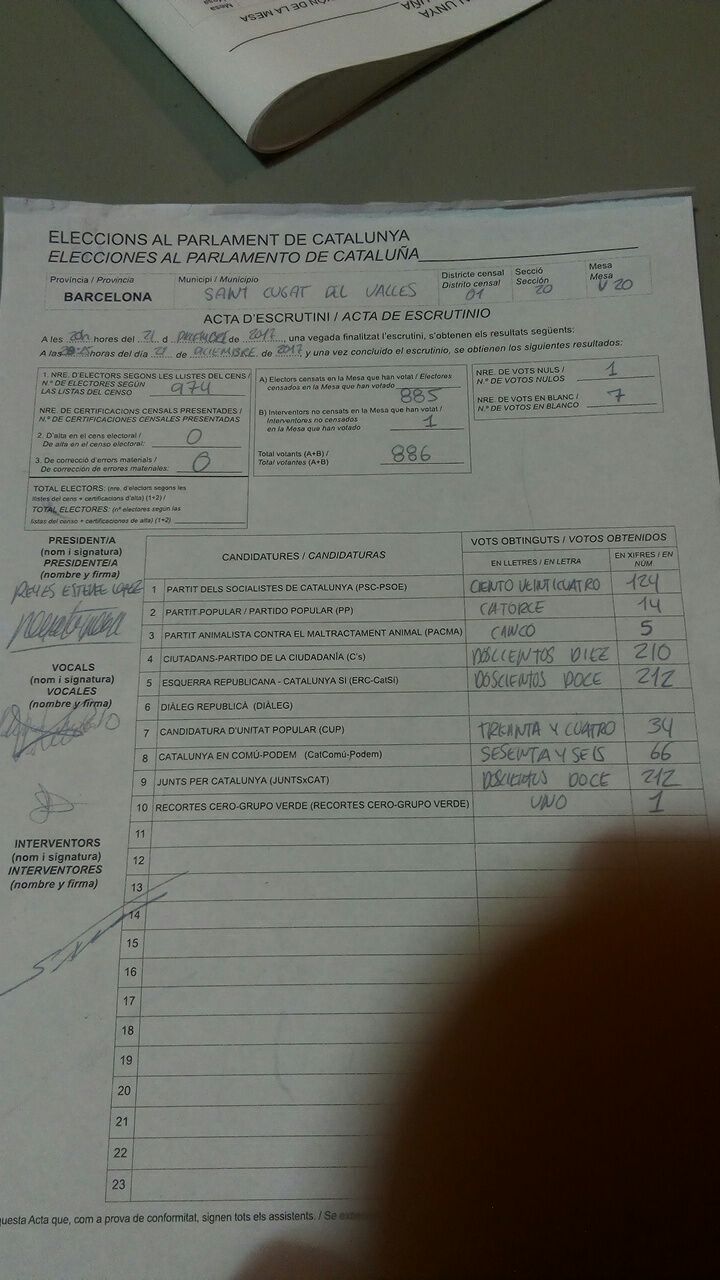 ELECCIONS AL PARLAMENT DE CATALUNYA
ELECCIONES AL PARLAMENTO DE CATALUÑA
Província / Provincia
BARCELONA
Municipi / Municipio
SAINT CUGAT DEL VALLES
Districte censal
Distrito censal
01
Secció
Sección
20
Mesa
Mesa
V 20
ACTA D'ESCRUTINI / ACTA DE ESCRUTINIO
A les 20h hores del 21 d DICIEMBRE de 2017, una vegada finalitzat l'escrutini, s'obtenen els resultats següents:
A las horas del día 21 de DICIEMBRE de 2017 y una vez concluido el escrutinio, se obtienen los siguientes resultados:
1. NRE. D'ELECTORS SEGONS LES LLISTES DEL CENS /
N.º DE ELECTORES SEGÚN
LAS LISTAS DEL CENSO 974
NRE. DE CERTIFICACIONS CENSALS PRESENTADES /
N.º DE CERTIFICACIONES CENSALES PRESENTADAS
2. D'alta en el cens electoral /
De alta en el censo electoral: 0
3. De correcció d'errors materials /
De corrección de errores materiales: 0
TOTAL ELECTORS: (nre. d'electors segons les
llistes del cens + certificacions d'alta) (1+2) /
TOTAL ELECTORES: (nº electores según las
listas del censo + certificaciones de alta) (1+2)
A) Electors censats en la Mesa que han votat / Electores
censados en la Mesa que han votado 885
B) Interventors no censats en la Mesa que han votat /
Interventores no censados
en la Mesa que han votado 1
Total votants (A+B) /
Total votantes (A+B) 886
NRE. DE VOTS NULS /
N.º DE VOTOS NULOS 1
NRE. DE VOTS EN BLANC /
N.º DE VOTOS EN BLANCO 7
PRESIDENT/A
(nom i signatura)
PRESIDENTE/A
(nombre y firma)
REYES ESTEVE
VOCALS
(nom i signatura)
VOCALES
(nombre y firma)
INTERVENTORS
(nom i signatura)
INTERVENTORES
(nombre y firma)
CANDIDATURES / CANDIDATURAS
VOTS OBTINGUTS / VOTOS OBTENIDOS
EN LLETRES / EN LETRA
EN XIFRES / EN NÚM
1 PARTIT DELS SOCIALISTES DE CATALUNYA (PSC-PSOE) CIENTO VEINTICUATRO 124
2 PARTIT POPULAR / PARTIDO POPULAR (PP) CATORCE 14
3 PARTIT ANIMALISTA CONTRA EL MALTRACTAMENT ANIMAL (PACMA) CINCO 5
4 CIUTADANS-PARTIDO DE LA CIUDADANÍA (C's) DOSCIENTOS DIEZ 210
5 ESQUERRA REPUBLICANA - CATALUNYA SÍ (ERC-CatSí) DOSCIENTOS DOCE 212
6 DIÀLEG REPUBLICÀ (DIÀLEG)
7 CANDIDATURA D'UNITAT POPULAR (CUP) TREINTA Y CUATRO 34
8 CATALUNYA EN COMÚ-PODEM (CatComú-Podem) SESENTA Y SEIS 66
9 JUNTS PER CATALUNYA (JUNTSxCAT) DOSCIENTOS DOCE 212
10 RECORTES CERO-GRUPO VERDE (RECORTES CERO-GRUPO VERDE) UNO 1
11
12
13
14
15
16
17
18
19
20
21
22
23
questa Acta que, com a prova de conformitat, signen tots els assistents. / Se